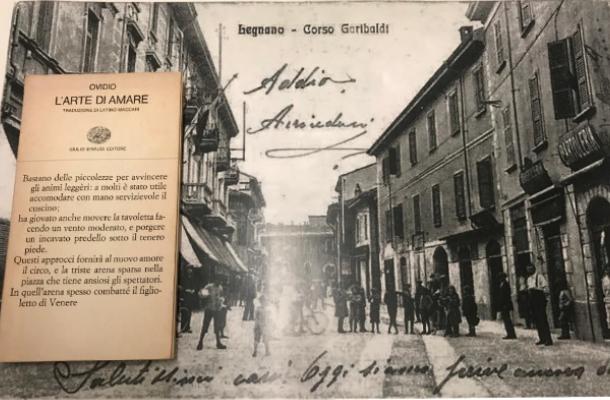 Legnano - Corso Garibaldi
Addio
Arrivederci
OVIDIO
L'ARTE DI AMARE
TRADUZIONE DI LATINO MACCARI
GIULIO EINAUDI EDITORE
Bastano delle piccolezze per avvincere
gli animi leggèri: a molti è stato utile
accomodare con mano servizievole il
cuscino;
ha giovato anche movere la tavoletta fa-
cendo un vento moderato, e porgere
un incavato predello sotto il tenero
piede.
Questi approcci fornirà al nuovo amore
il circo, e la triste arena sparsa nella
piazza che tiene ansiosi gli spettatori.
In quell'arena spesso combatté il figlio-
letto di Venere
CARTOLERIA
Saluti Oggi siamo